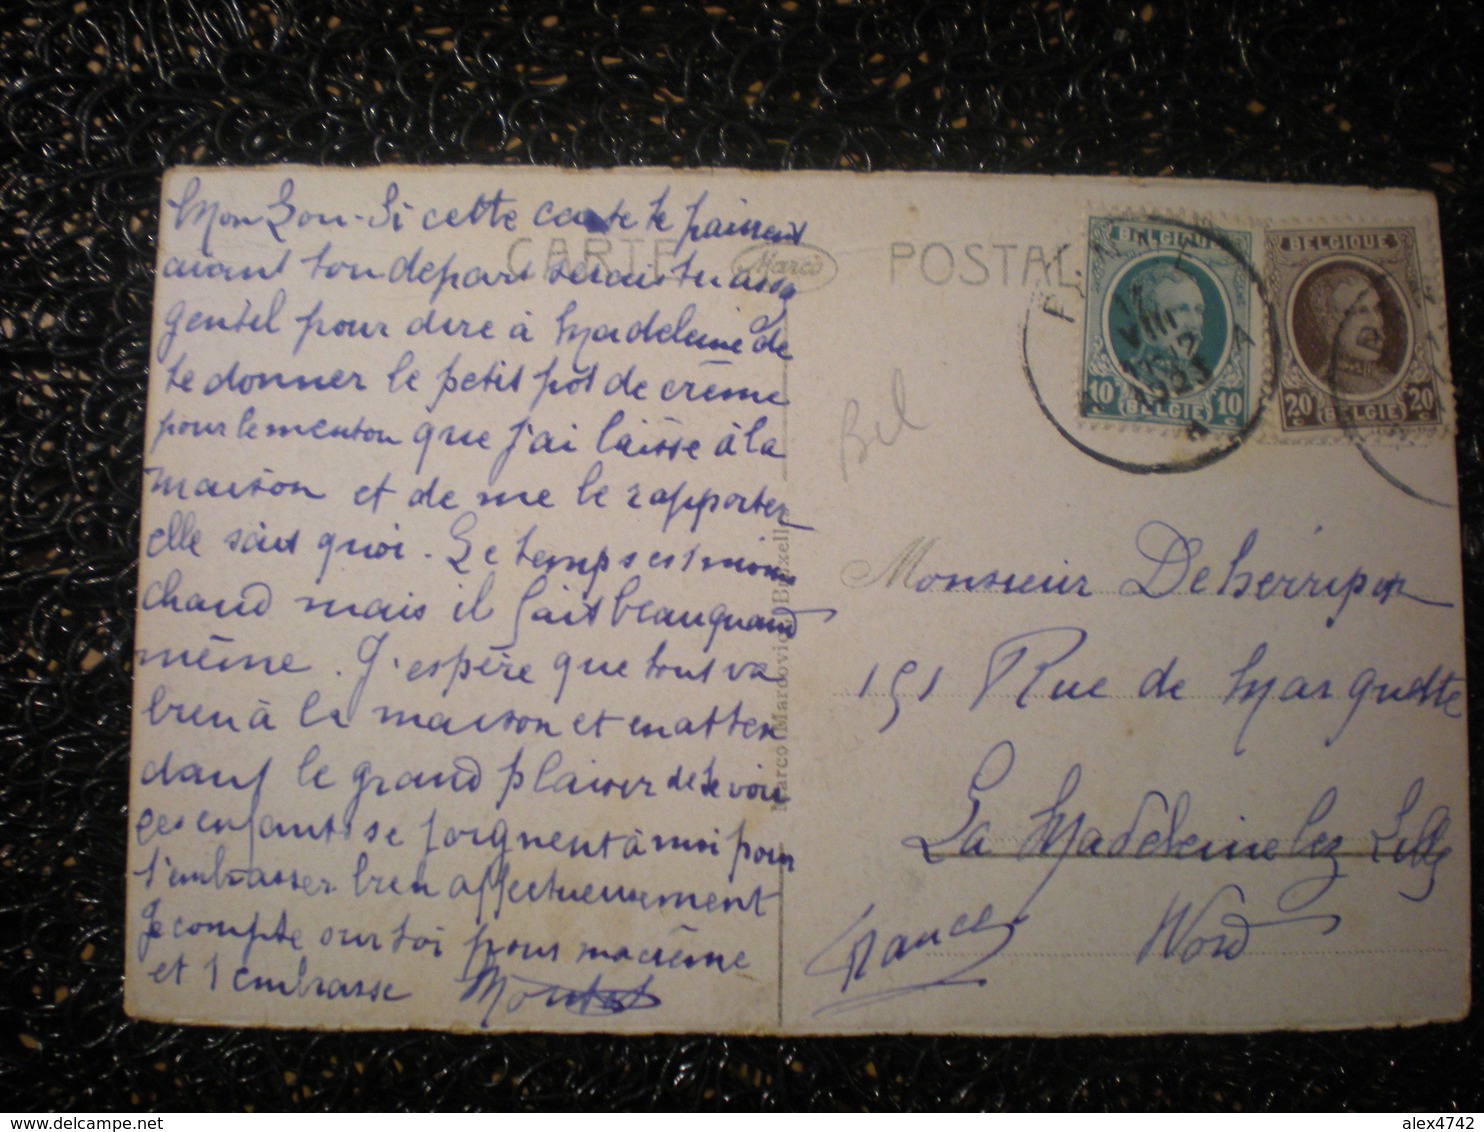 Mon Lou - Si cette carte te parvient
avant ton départ serais tu assez
gentil pour dire à Madeleine de
te donner le petit pôt de crème
pour le menton que j'ai laisse à la
maison et de me le rapporter
elle sait quoi. Le temps est moins
chaud mais il fait beau quand
même. J'espère que tout va
bien à la maison et en atten
dant le grand plaisir de te voir
les enfants se joignent à moi pour
t'embrasser bien affectueusement
Je compte sur toi pour ma crème
et t'embrasse
CARTE POSTALE
Marco
Marco (Marcovici) Bruxelles
BELGIQUE
10 BELGIE 10
BELGIQUE
20 BELGIE 20
VIII
Bel
Monsieur
151 Rue de Marquette
La Madeleine lez Lille
France Nord
alex4742